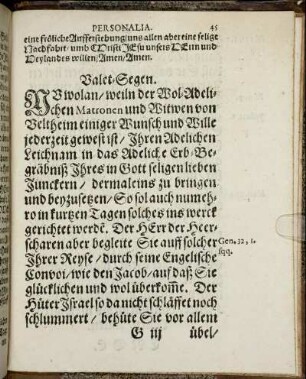 PERSONALIA. 45
eine fröliche Aufferstehung/ uns allen aber eine selige
Nachfahrt/ umb Christi JEsu unsers HErrn und
Heylandes willen/ Amen/ Amen.
Valet-Segen.
NUn wolan/ weiln der Wol-Adeli-
chen Matronen und Witwen von
Veltheim einiger Wunsch und Wille
jederzeit gewest ist/ Ihren Adelichen
Leichnam in das Adeliche Erb-Be-
gräbniß Ihres in Gott seligen lieben
Junckern/ dermaleins zu bringen
und beyzusetzen/ So sol auch numeh-
ro in kurtzen Tagen solches ins werck
gerichtet werdē. Der HErr der Heer-
scharen aber begleite Sie auff solcher Gen. 32, 1.
Ihrer Reyse/ durch seine Engelische sqq.
Convoi/ wie den Jacob/ auf daß Sie
glücklichen und wol überkom̄e. Der
Hüter Israel so da nicht schläffet noch
schlummert/ behüte Sie vor allem
G iij übel/